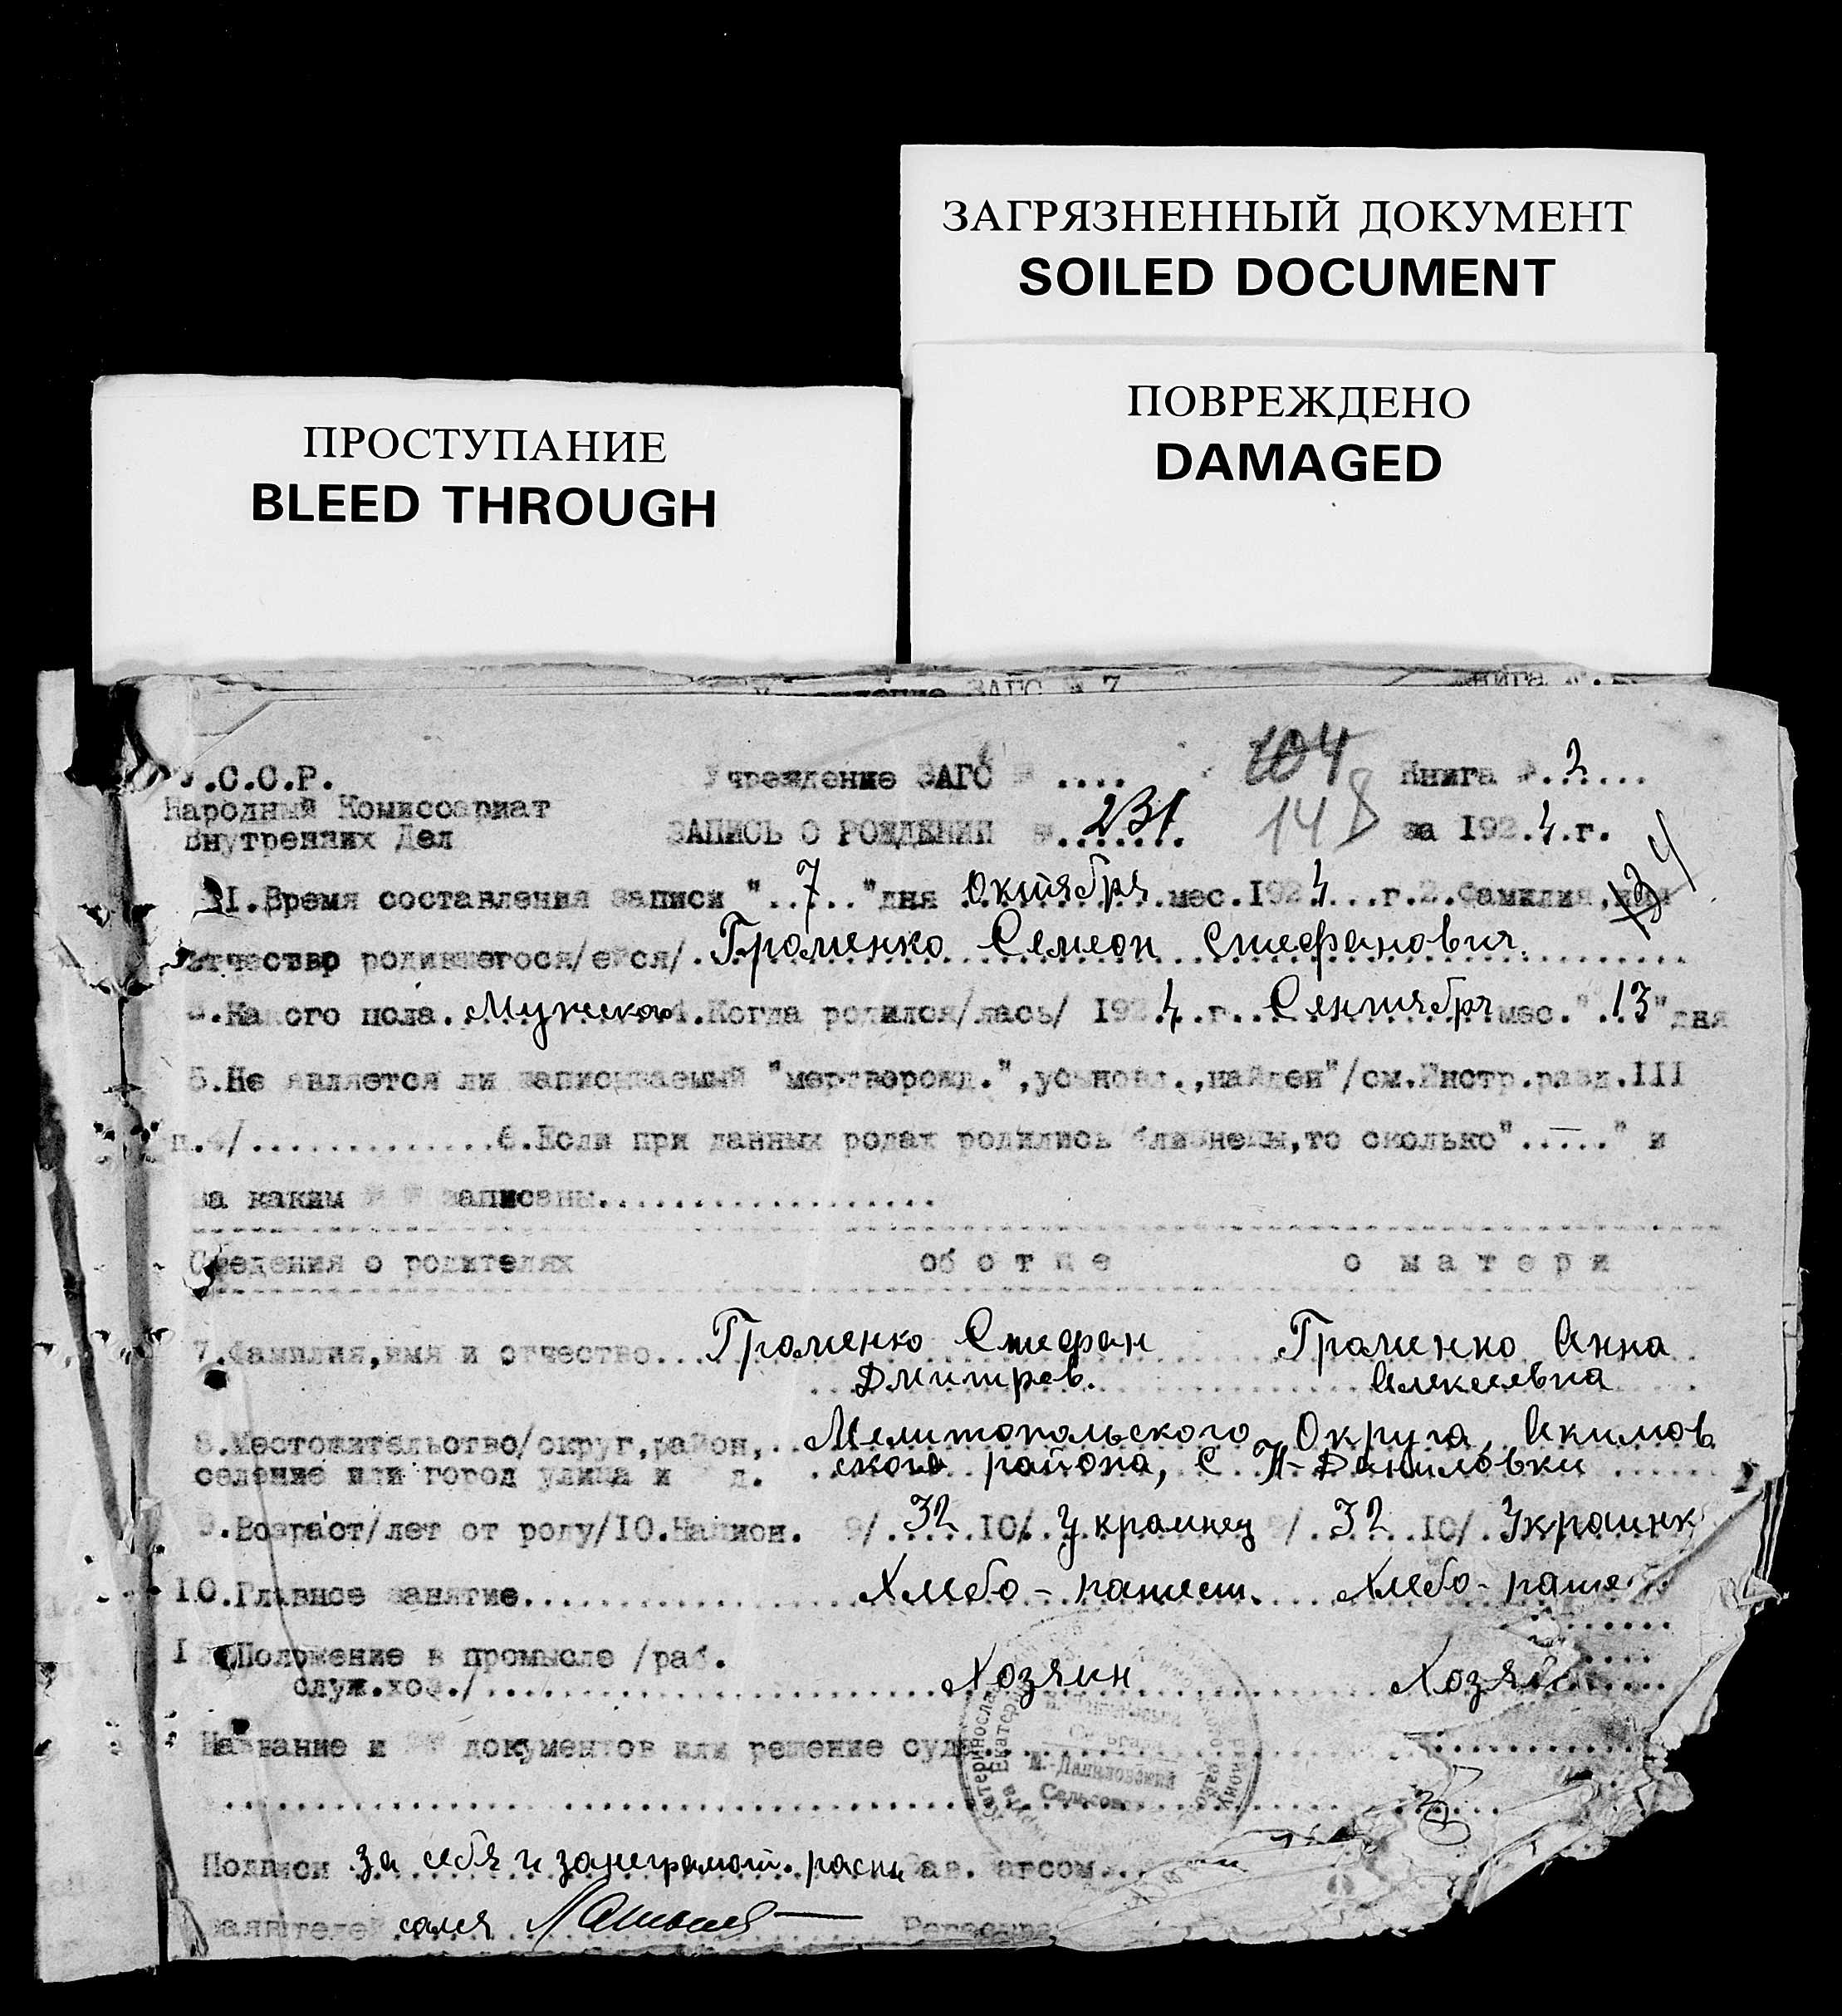 ЗАГРЯЗНЕННЫЙ ДОКУМЕНТ
SOILED DOCUMENT
ПОВРЕЖДЕНО
DAMAGED
ПРОСТУПАНИЕ
BLEED THROUGH
ЗАГС № 7
.С.С.Р. Учреждение ЗАГС № .... 104 Книга №.2.....
Народный Комиссариат
Внутренних Дел ЗАПИСЬ О РОЖДЕНИИ №.231. 148 за 192.4.г.
34
1.Время составления записи "..7.."дня Октября мес.1924...г.2.Фамилия,имя
отчество родившегося/ейся/.Граменко Семеон Стефанович
3.Какого пола.Мужского 4.Когда родился/лась/ 1924.г..Сентября мес."13"дня
5.Не является ли записываемый "мертворожд.",усыновл.,найден"/см.Инстр.разд.III
п.4/.............6.Если при данных родах родились близнецы,то сколько"..—.." и
за каким № № записаны..................
Сведения о родителях об отце о матери
7.Фамилия,имя и отчество...Граменко Стефан Граменко Анна
Дмитрев. Алексеевна
8.Местожительство/округ,район, Мелитопольского Округа, Акимов
селение или город улица и д. ского района, С. Н-Даниловки
9.Возраст/лет от роду/10.Национ. 9/.32..10/.Украинец 9/.32..10/.Украинк
10.Главное занятие..................Хлебо-пашест. Хлебо-паше
1 Положение в промысле /раб.
служ.хоз./..................Хозяин Хозяй
Название и №№ документов или решение суда.
Н.-Даниловский
Подписи за себя и за неграмот. распи Зав. загсом...
заявителей сался